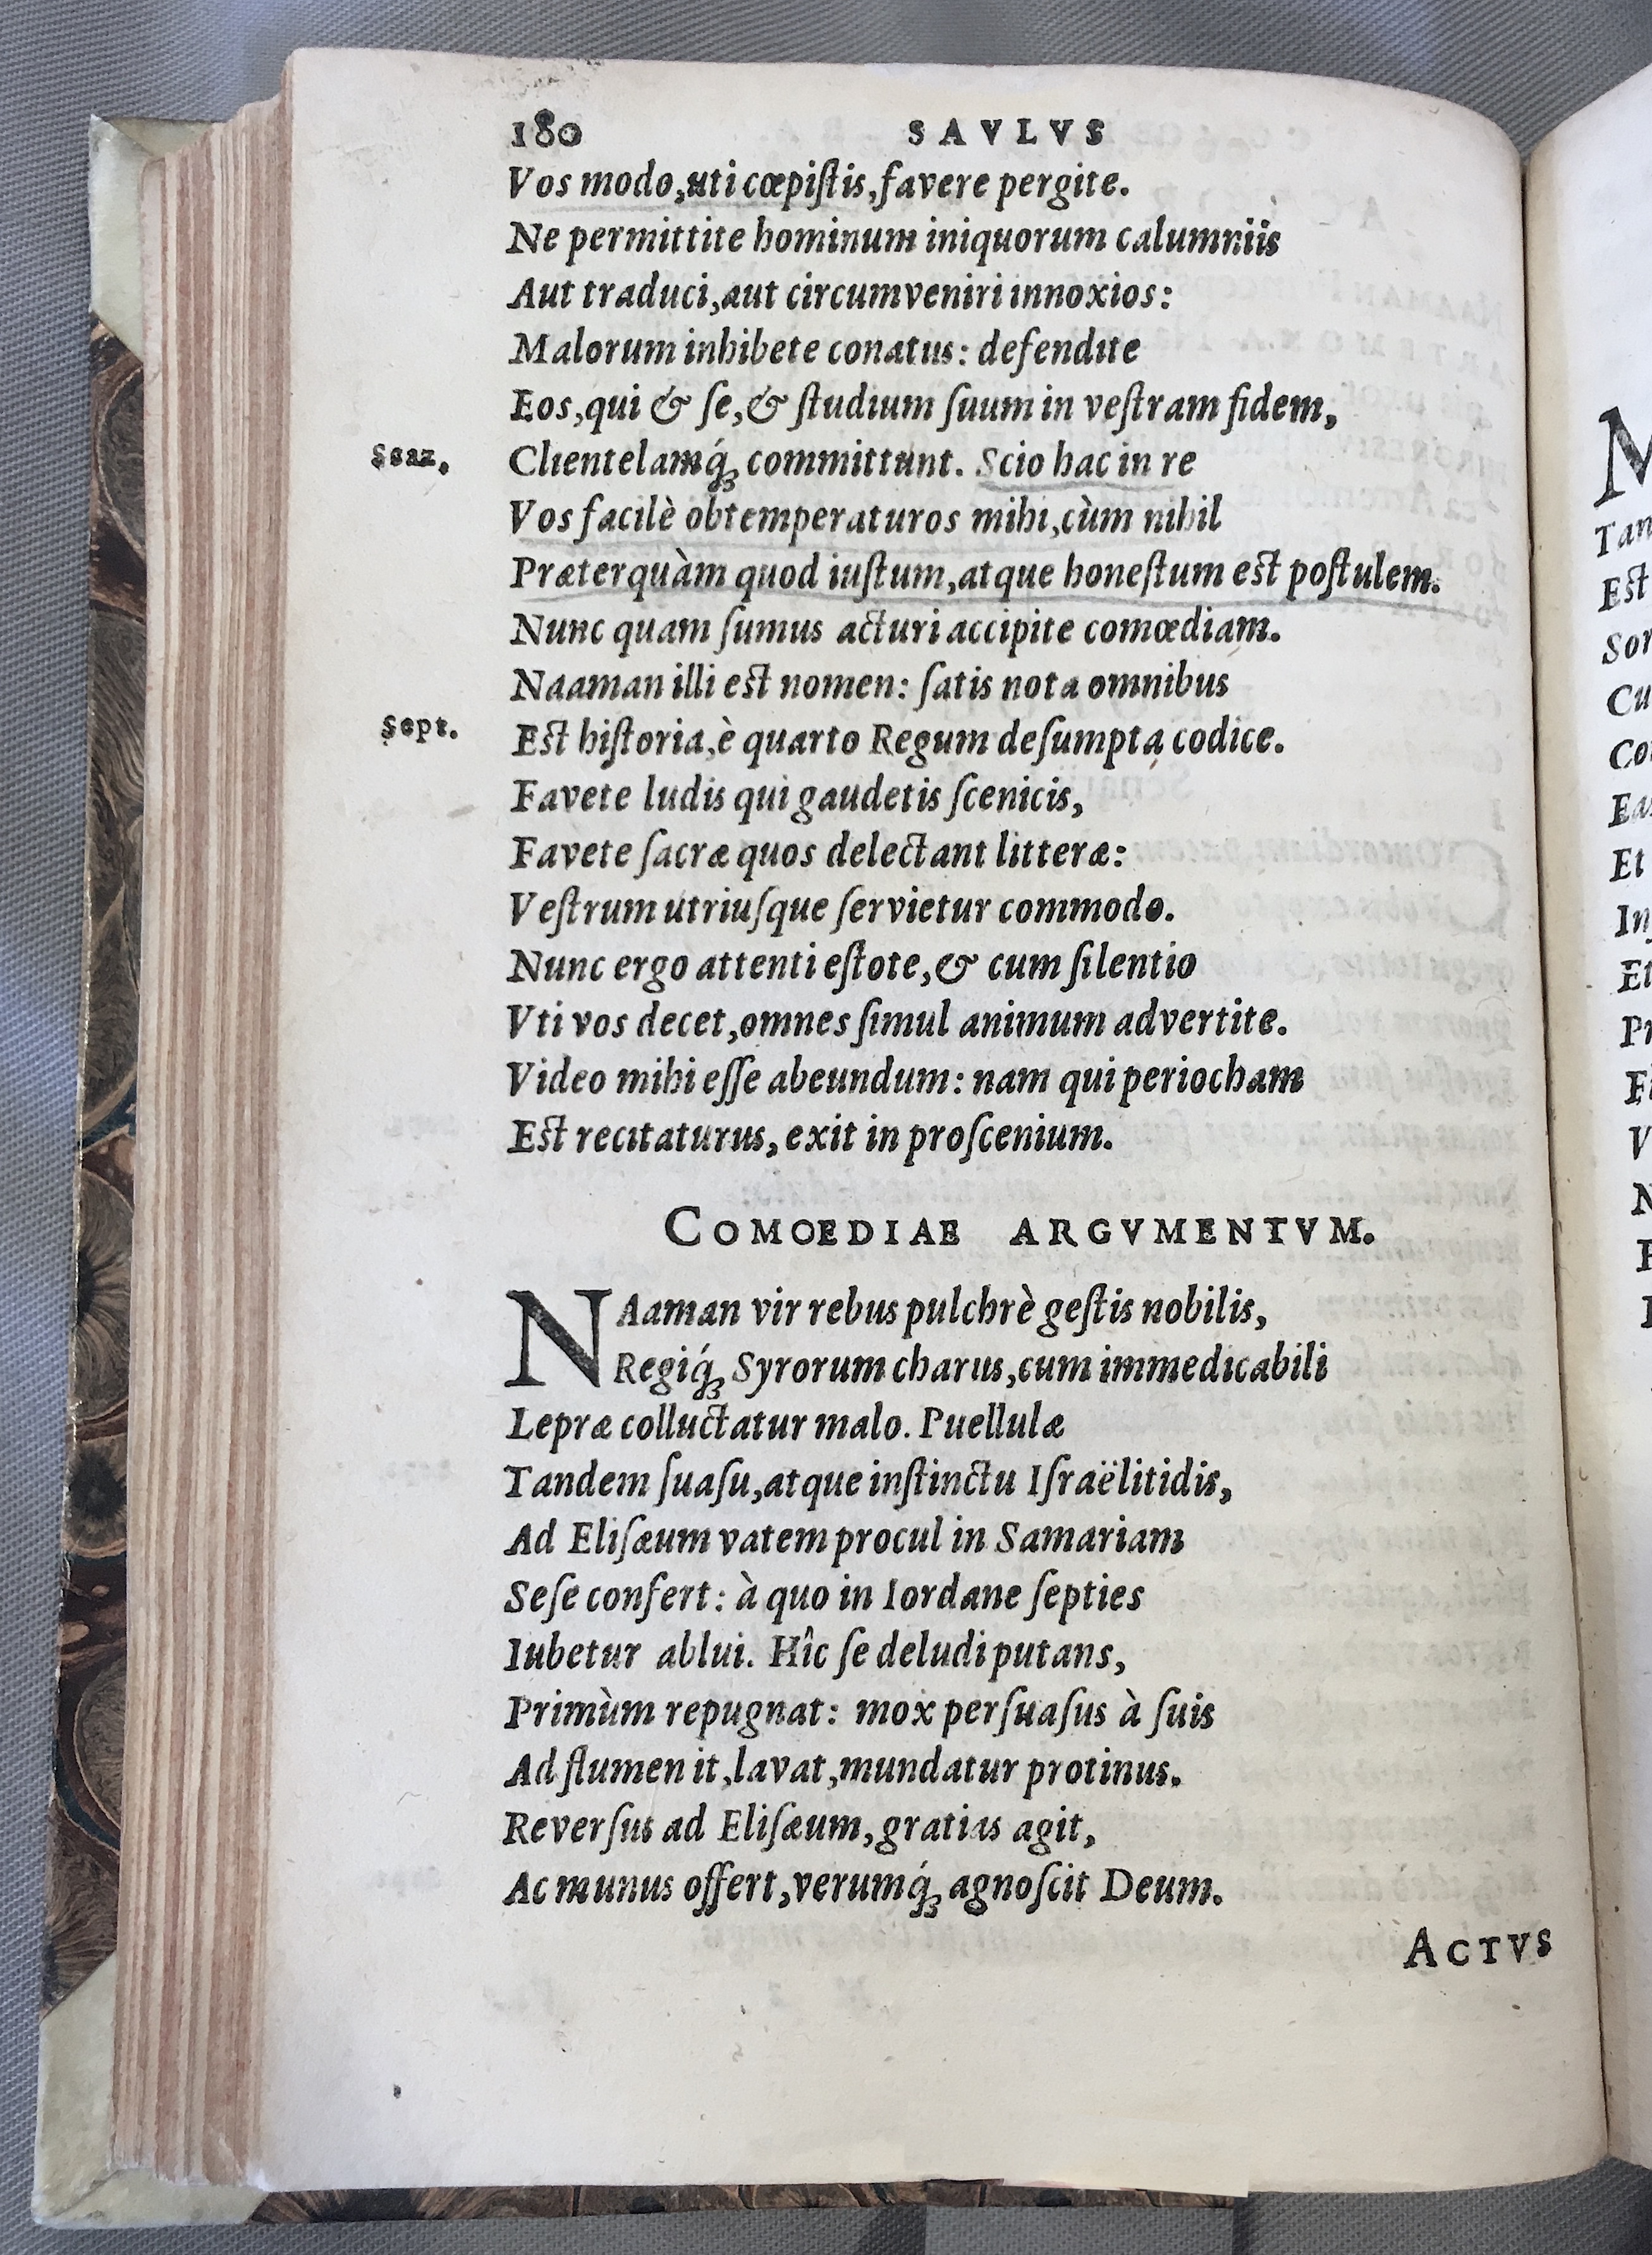 180 SAVLVS
Vos modo,uti cœpiſtis,favere pergite.
Ne permittite hominum iniquorum calumniis
Aut traduci,aut circumveniri innoxios:
Malorum inhibete conatus: defendite
Eos,qui & ſe,& ſtudium ſuum in veſtram fidem,
Scaz. Clientelamq́; committunt. Scio hac in re
Vos facilè obtemperaturos mihi,cùm nihil
Præterquàm quod iuſtum,atque honeſtum eſt poſtulem.
Nunc quam ſumus acturi accipite comœdiam.
Naaman illi eſt nomen: ſatis nota omnibus
Sept. Eſt hiſtoria,è quarto Regum deſumpta codice.
Favete ludis qui gaudetis ſcenicis,
Favete ſacræ quos delectant litteræ:
Veſtrum utriuſque ſervietur commodo.
Nunc ergo attenti eſtote,& cum ſilentio
Vti vos decet,omnes ſimul animum advertite.
Video mihi eſſe abeundum: nam qui periocham
Eſt recitaturus, exit in proſcenium.
COMOEDIAE ARGVMENTVM.
NAaman vir rebus pulchrè geſtis nobilis,
Regiq́; Syrorum charus,cum immedicabili
Lepræ colluctatur malo. Puellulæ
Tandem ſuaſu,atque inſtinctu Iſraëlitidis,
Ad Eliſæum vatem procul in Samariam
Seſe confert: à quo in Iordane ſepties
Iubetur ablui. Hîc ſe deludi putans,
Primùm repugnat: mox perſuaſus à ſuis
Ad flumen it,lavat,mundatur protinus.
Reverſus ad Eliſæum,gratias agit,
Ac munus offert,verumq́; agnoſcit Deum.
ACTVS
M
Tan
Eſt
Sor
Cu
Co
Ea
Et
In
Et
Pr
V
N